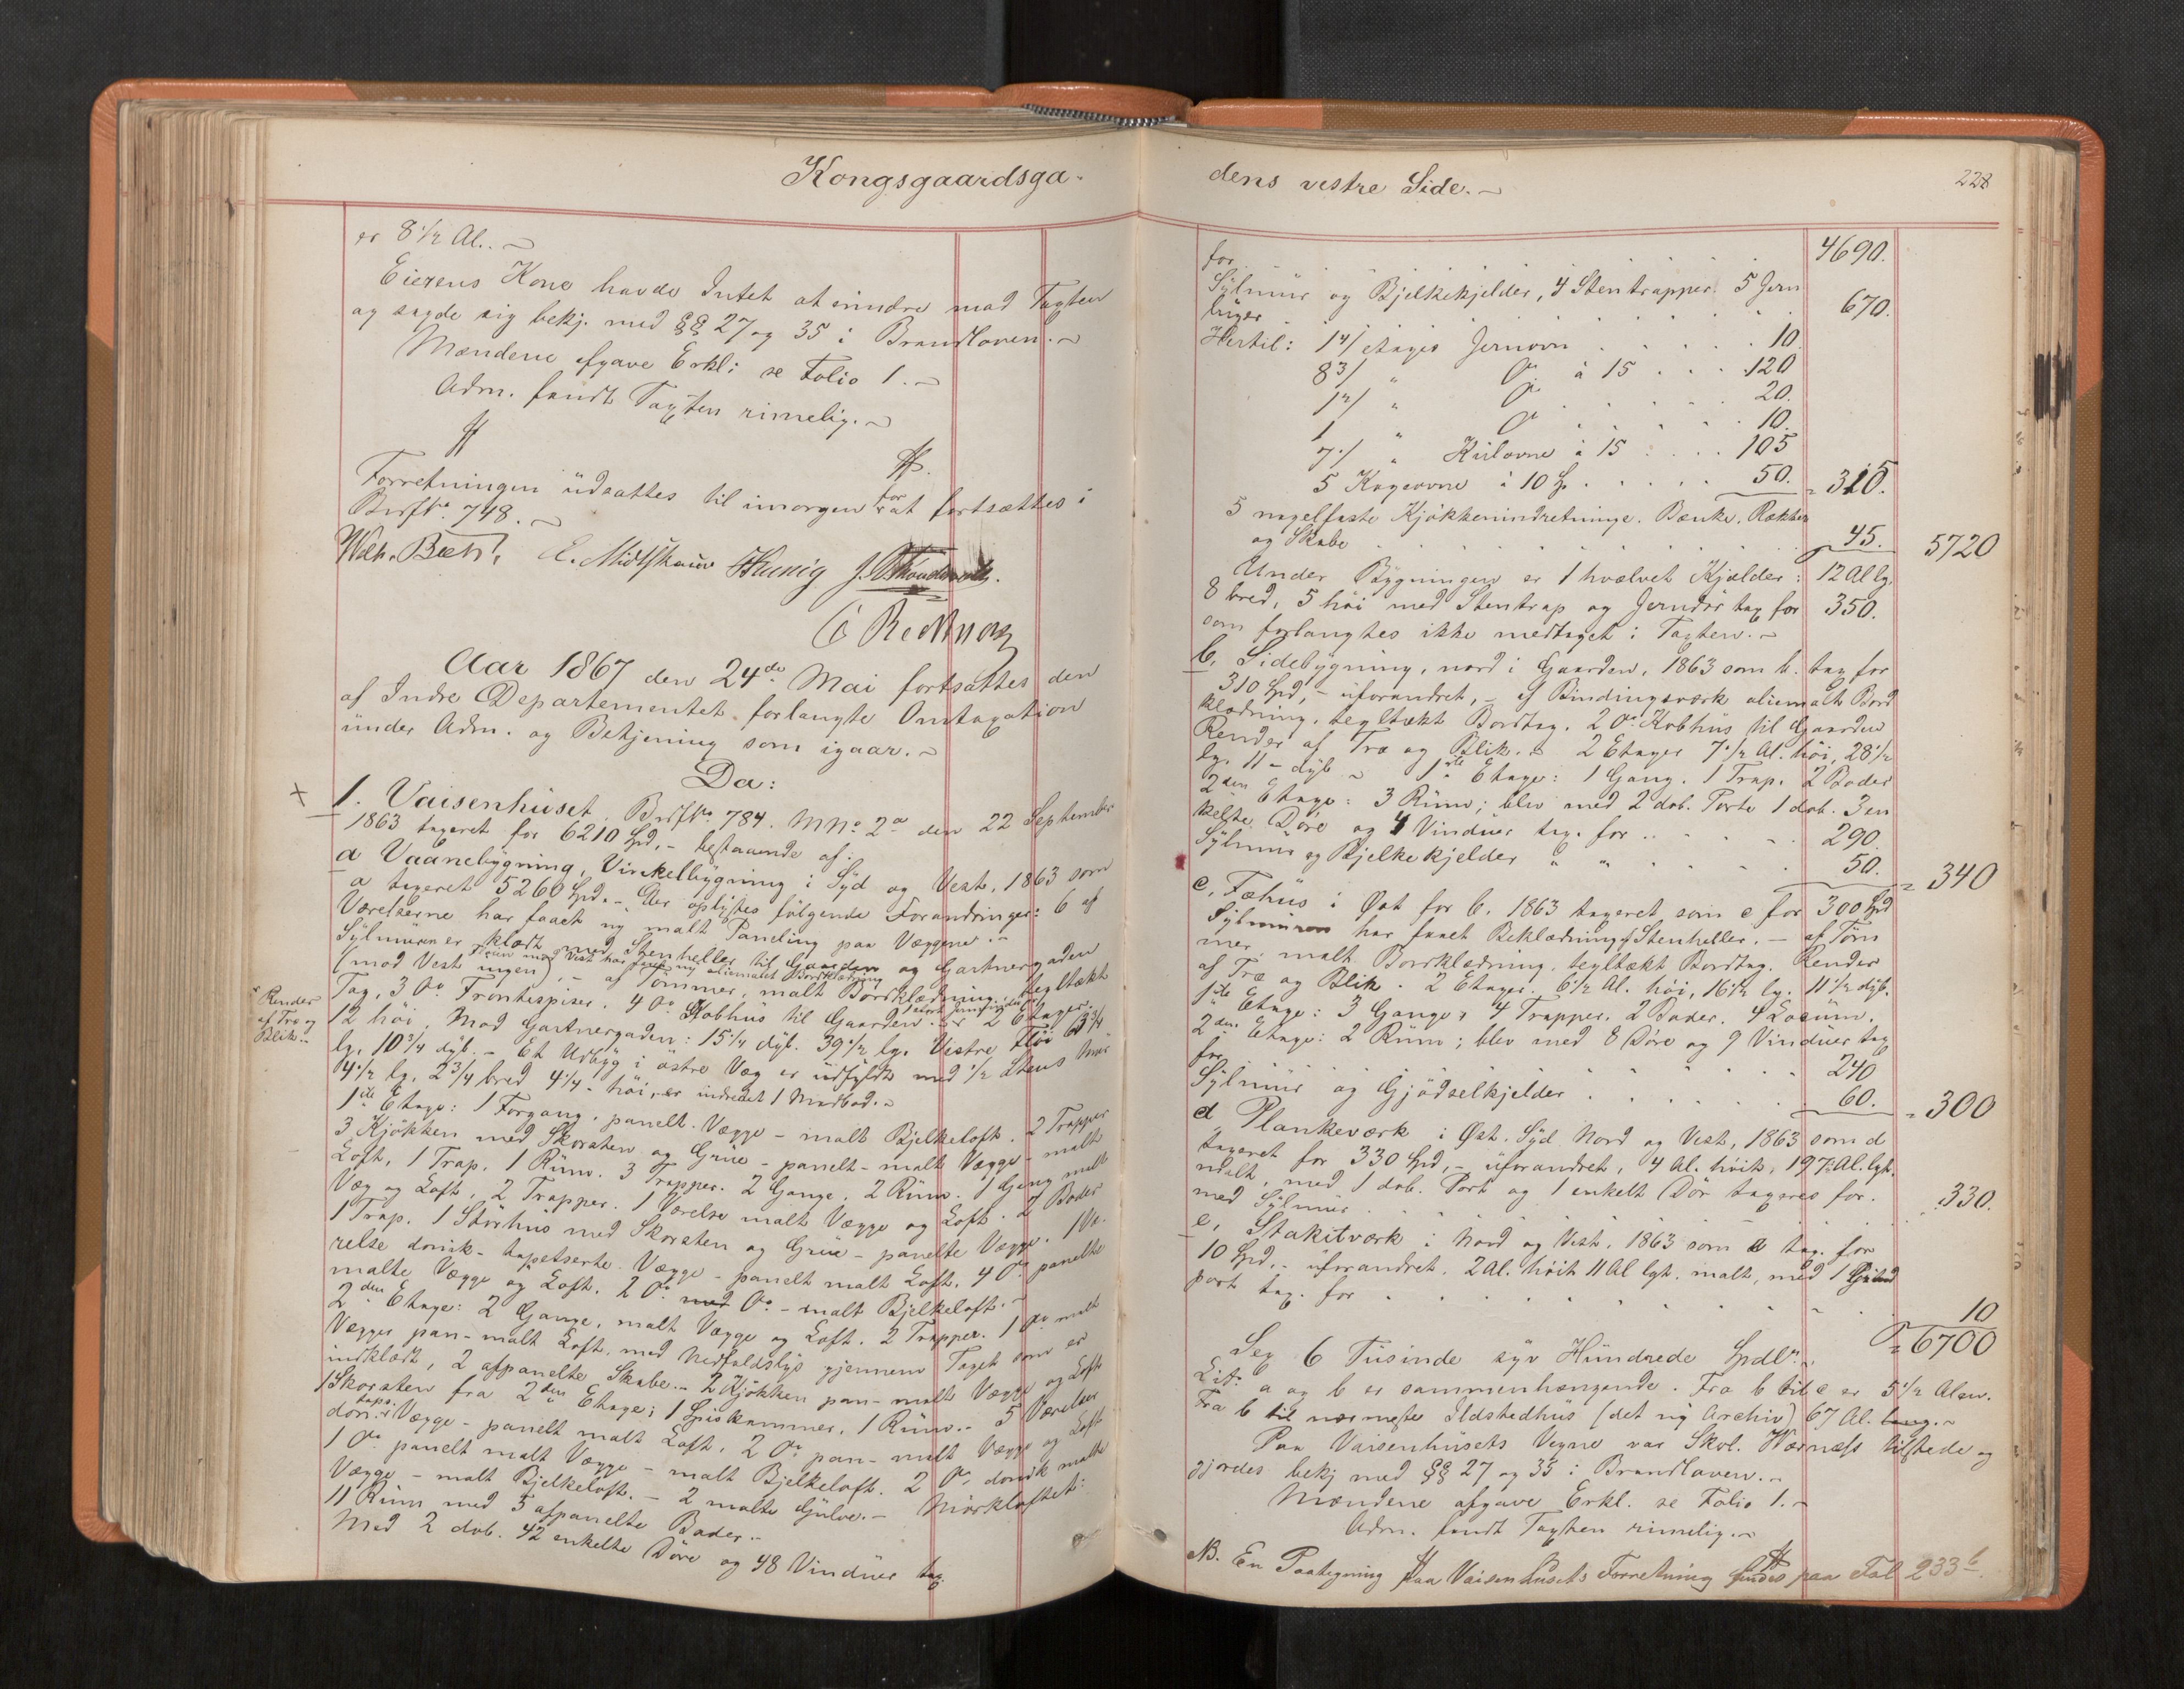 Kongsgaardsga-
er 8 1/2 Al. ~
Eierens Kone havde Intet at erindre mod Taxten
og sagde sig bekj. med §§ 27 og 35 i Brandloven. ~
Mændene afgave Erkl: se Folio 1. ~
Adm. fandt Taxten rimelig. ~
Forretningen udsattes til imorgen for at fortsættes i
Brsfno. 748. ~
Aar 1867 den 24de Mai fortsattes den
af Indre Departementet forlangte Omtaxation
under Adm. og Betjening som igaar. ~
Da:
1. Vaisenhuset. Brsfno. 784. MNo. 2a den 22 September
1863 taxeret for 6210 Spd, - bestaaende af:
a Vaanebygning, Vinkelbygning i Syd og Vest, 1863 som
a taxeret 5260 Spd. - Der oplystes følgende Forandringer: 6 af
Værelserne har faaet ny malt Paneling paa Væggene. -
Sylmuren er klædt med Stenheller til Gaarden og Gartnergaden
(mod Vest ingen), - af Tømmer, malt Bordklædning, tegltækt
Tag, 3 Do. Frontespiser. 4 Do. Kobhus til Gaarden. 2 Etager.
Render
af Træ og
Blik. -
12 høi. Mod Gartnergaden: 15 1/4 dyb. 39 1/2 lg. Vestre Fløi 63 3/4
lg. 10 3/4 dyb. - Et Udbyg i østre Væg er udfyldt med 1/2 Stens Mur
4 1/2 lg. 2 3/4 bred 4 1/4 - høi, er indredet 1 Madbod. -
1ste Etage: 1 Forgang, panelt Vægge - malt Bjelkeloft. 2 Trapper
3 Kjøkken med Skorsten og Grue - panelt - malt Vægge - malt
Loft, 1 Trap. 1 Rum. 3 Trapper. 2 Gange. 2 Rum. 1 Gang malt
Væg og Loft, 2 Trapper. 1 Værelse malt Vægge og Loft. 2 Boder
1 Trap. 1 Størhus med Skorsten og Grue - panelte Vægge. 1 Væ-
relse donik - tapetserte Vægge - panelt malt Loft. 4 Do. panelte
malte Vægge og Loft. 2 Do. med Do. - malt Bjelkeloft. -
2den Etage: 2 Gange, malt Vægge og Loft. 2 Trapper. 1 Do. malt
Vægge pan - malt Loft, med Nedfaldslys gjennem Taget som er
indklædt, 2 afpanelte Skabe. - 2 Kjøkken pan - malt Vægge og Loft
1 Skorsten fra 2den Etage; 1 Spiskammer, 1 Rum. - 5 Værelser
don: tape. Vægge - panelt malt Loft, 2 Do. pan - malt Vægge og Loft
1 Do. panelt malt Vægge - malt Bjelkeloft. 2 Do. donik malte
Vægge - malt Bjelkeloft. - 2 malte Gulve. - Mørkloftet:
11 Rum med 5 afpanelte Boder. -
Med 2 dob. 42 enkelte Døre og 48 Vinduer tax
dens vestre Side. ~
228
for . . . 4690.
Sylmur og Bjelkekjelder, 4 Stentrapper. 5 Jern
luger . . . 670.
Hertil: 1 4/ Etages Jernovn . . . 10.
8 3/ " Do. à 15 . . . 120
1 2/ " Do. . . . 20.
1 " Do. . . . 10.
7 1/ " Kulovne à 15 . . . 105
5 Kogeovne à 10 Sp. . . . 50. = 315.
5 nagelfaste Kjøkkenindretninge. Bænke. Rækker
og Skabe . . . 45. 5720
Under Bygningen er 1 hvælvet Kjælder: 12 Al lg.
8 bred, 5 høi med Stentrap og Jerndør tax for 350.
som forlangtes ikke medtaget i Taxten. ~
b. Sidebygning, nord i Gaarden, 1863 som b. tax for
310 Spd, - uforandret, - af Bindingsværk oliemalt Bord
klædning, tegltækt Bordtag. 2 Do. Kobhus til Gaarden
Render af Træ og Blik. - 2 Etager 7 1/2 Al. høi, 28 1/2
lg. 11 - dyb ~ 1ste Etage: 1 Gang. 1 Trap. 2 Boder
2den Etage: 3 Rum; blev med 2 dob. Porte 1 dob. 3 en
kelte Døre og 4 Vinduer tax. for . . . 290.
Sylmur og Bjelkekjelder " " . . . 50. = 340
c, Fæhus i Øst for b. 1863 taxeret som c for 300 Spd
Sylmuren har faaet Beklædning af Stenheller. - af Tøm
mer. malt Bordklædning. tegltækt Bordtag. Render
af Træ og Blik. 2 Etager. 6 1/2 Al. høi, 16 1/2 lg. 11 1/2 dyb.
1ste Etage: 3 Gange, 4 Trapper. 2 Boder. 4 Locum.
2den Etage: 2 Rum; blev med 8 Døre og 9 Vinduer tax
for . . . 240
Sylmur og Gjødselkjelder . . . 60. = 300
d Plankeværk i Øst. Syd Nord og Vest, 1863 som d
taxeret for 330 Spd, - uforandret, 4 Al. høit, 197 1/2 Al. lgt.
malt, med 1 dob. Port og 1 enkelt Dør taxeres for.
med Sylmur . . . 330.
e, Stakitværk i Nord og Vest. 1863 som e tax. for
10 Spd, - uforandret. 2 Al. høit 11 Al lgt. malt, med 1 Grind
port tax. for . . . 10
= 6700
Seg 6 Tusinde syv Hundrede Spdlr. -
Litr. a og b er sammenhængende. Fra b til c er 5 1/2 Alen.
Fra b til nærmeste Ildstedhus (det ny Archiv) 67 Al. lang. ~
Paa Vaisenhusets Vegne var Skol. Wærnæss tilstede og
gjordes bekj med §§ 27 og 35 i Brandloven. ~
Mændene afgave Erkl. se Folio 1. ~
Adm. fandt Taxten rimelig. ~
NB. En Paategning paa Vaisenhusets Forretning findes paa Fol 233b.